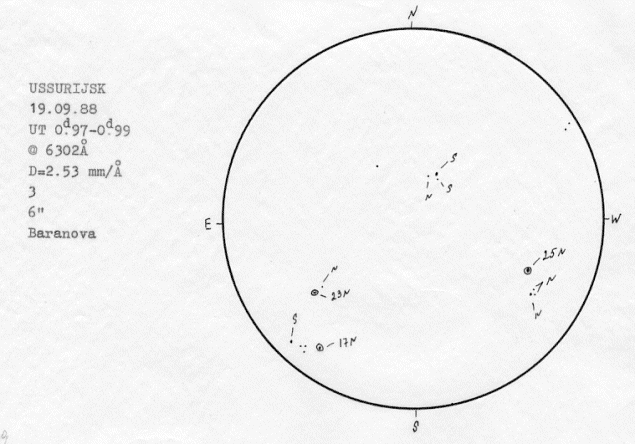 USSURIJSK
19.09.88
UT 0ᵈ.97-0ᵈ.99
@ 6302Å
D=2.53 mm/Å
3
6"
Baranova
N
S
S
N
E
W
25N
N
N
N
23N
S
17N
S